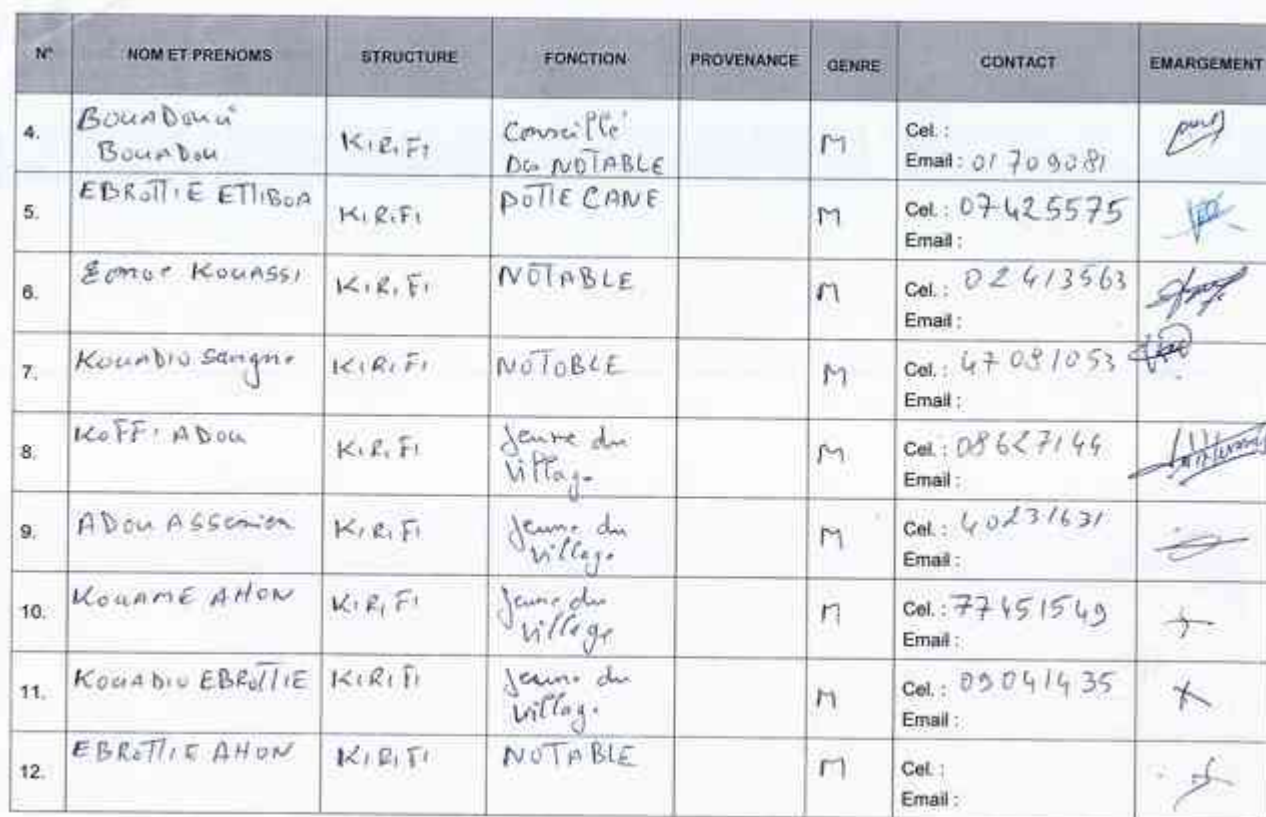 N° NOM ET PRENOMS STRUCTURE FONCTION PROVENANCE GENRE CONTACT EMARGEMENT
4. BOUADOUCI KIRIFI Conseillé M Cel. :
BOUADOU DU NOTABLE Email : 01709081
5. EBROTTIE ETTIBOA KIRIFI POTTE CANE M Cel. : 07425575
Email :
6. KOUASSI KIRIFI NOTABLE M Cel. : 02413563
Email :
7. KOUADIO Sangne KIRIFI NOTOBLE M Cel. : 47081053
Email :
8. KOFFI ADOU KIRIFI Jeune du M Cel. : 08627144
village Email :
9. ADOU ASSEmien KIRIFI Jeune du M Cel. : 40231631
village Email :
10. KOUAME AHON KIRIFI Jeune du M Cel. : 77451549
village Email :
11. KOUADIO EBROTTIE KIRIFI Jeune du M Cel. : 09041435
village Email :
12. EBROTTIE AHON KIRIFI NOTABLE M Cel. :
Email :